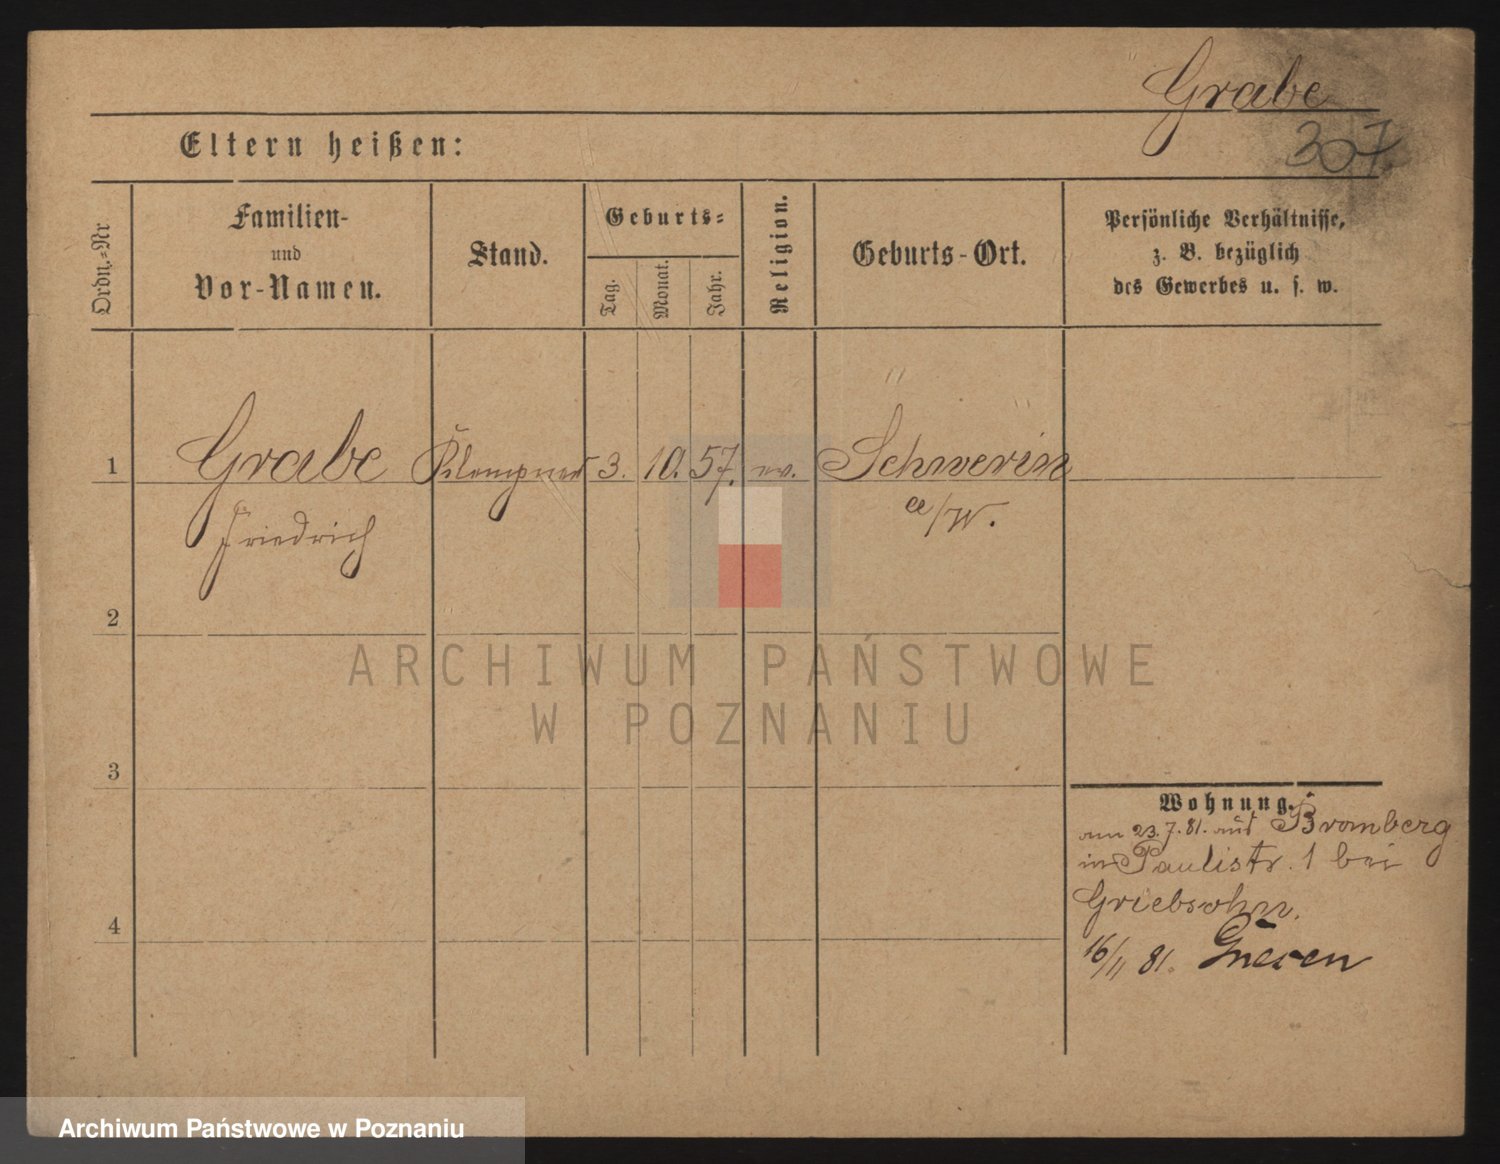 Grabe
307
Eltern heißen:
Ordn.-Nr
Familien-
und
Vor-Namen.
Stand.
Geburts-
Tag.
Monat.
Jahr.
Religion.
Geburts-Ort.
Persönliche Verhältnisse,
z. B. bezüglich
des Gewerbes u. s. w.
1 Grabe Klempner 3. 10. 57. ev. Schwerin
Friedrich a/W.
2
3
4
Wohnung.
am 23.7.81. aus Bromberg
in Paulistr. 1 bei
Griebsohn.
16/11 81. Gnesen
ARCHIWUM PAŃSTWOWE
W POZNANIU
Archiwum Państwowe w Poznaniu